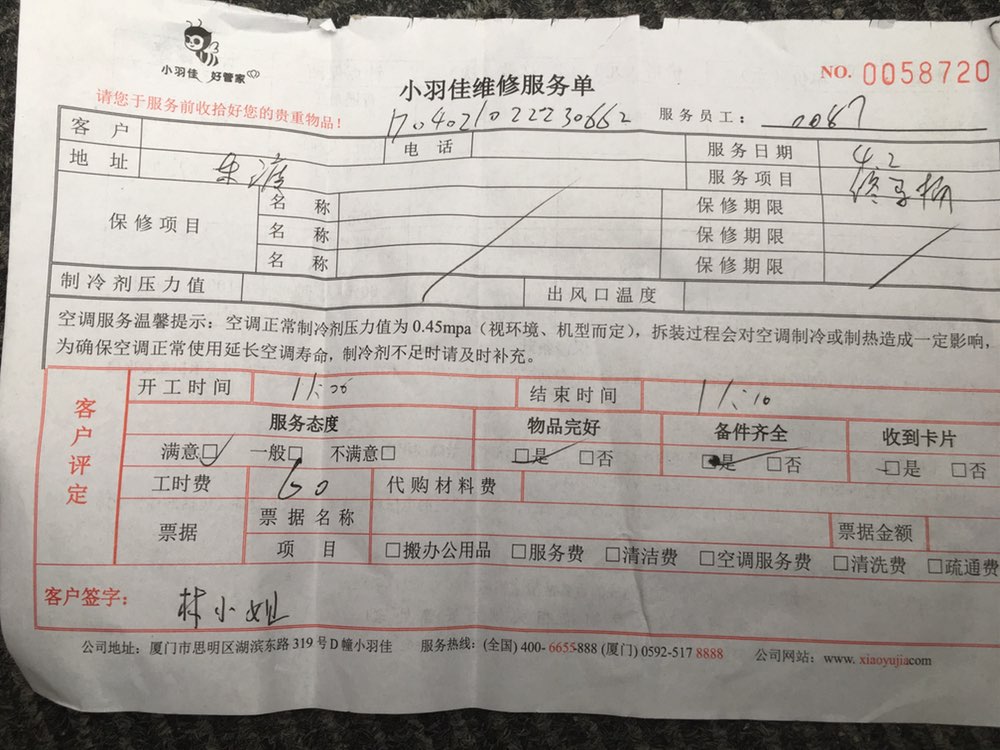 小羽佳 好管家
小羽佳维修服务单
NO. 0058720
请您于服务前收拾好您的贵重物品！
170402102223 0662 服务员工： 0087
客户 电话 服务日期 4.2
地址 服务项目
保修项目 名称 保修期限
名称 保修期限
名称 保修期限
制冷剂压力值 出风口温度
空调服务温馨提示：空调正常制冷剂压力值为 0.45mpa（视环境、机型而定），拆装过程会对空调制冷或制热造成一定影响，
为确保空调正常使用延长空调寿命，制冷剂不足时请及时补充。
客户评定
开工时间 11:00 结束时间 11:10
服务态度 物品完好 备件齐全 收到卡片
满意□ 一般□ 不满意□ □是 □否 □是 □否 □是 □否
工时费 60 代购材料费
票据 票据名称 票据金额
项目 □搬办公用品 □服务费 □清洁费 □空调服务费 □清洗费 □疏通费
客户签字： 林小姐
公司地址：厦门市思明区湖滨东路 319 号 D 幢小羽佳 服务热线：(全国) 400- 6655-888 (厦门) 0592-517 8888 公司网站：www. xiaoyujia.com